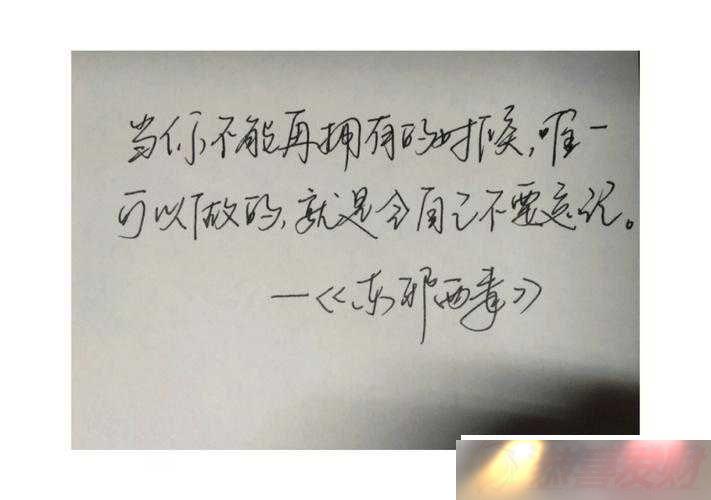 当你不能再拥有的时候,唯一
可以做的,就是令自己不要忘记。
—《东邪西毒》
恭喜发财